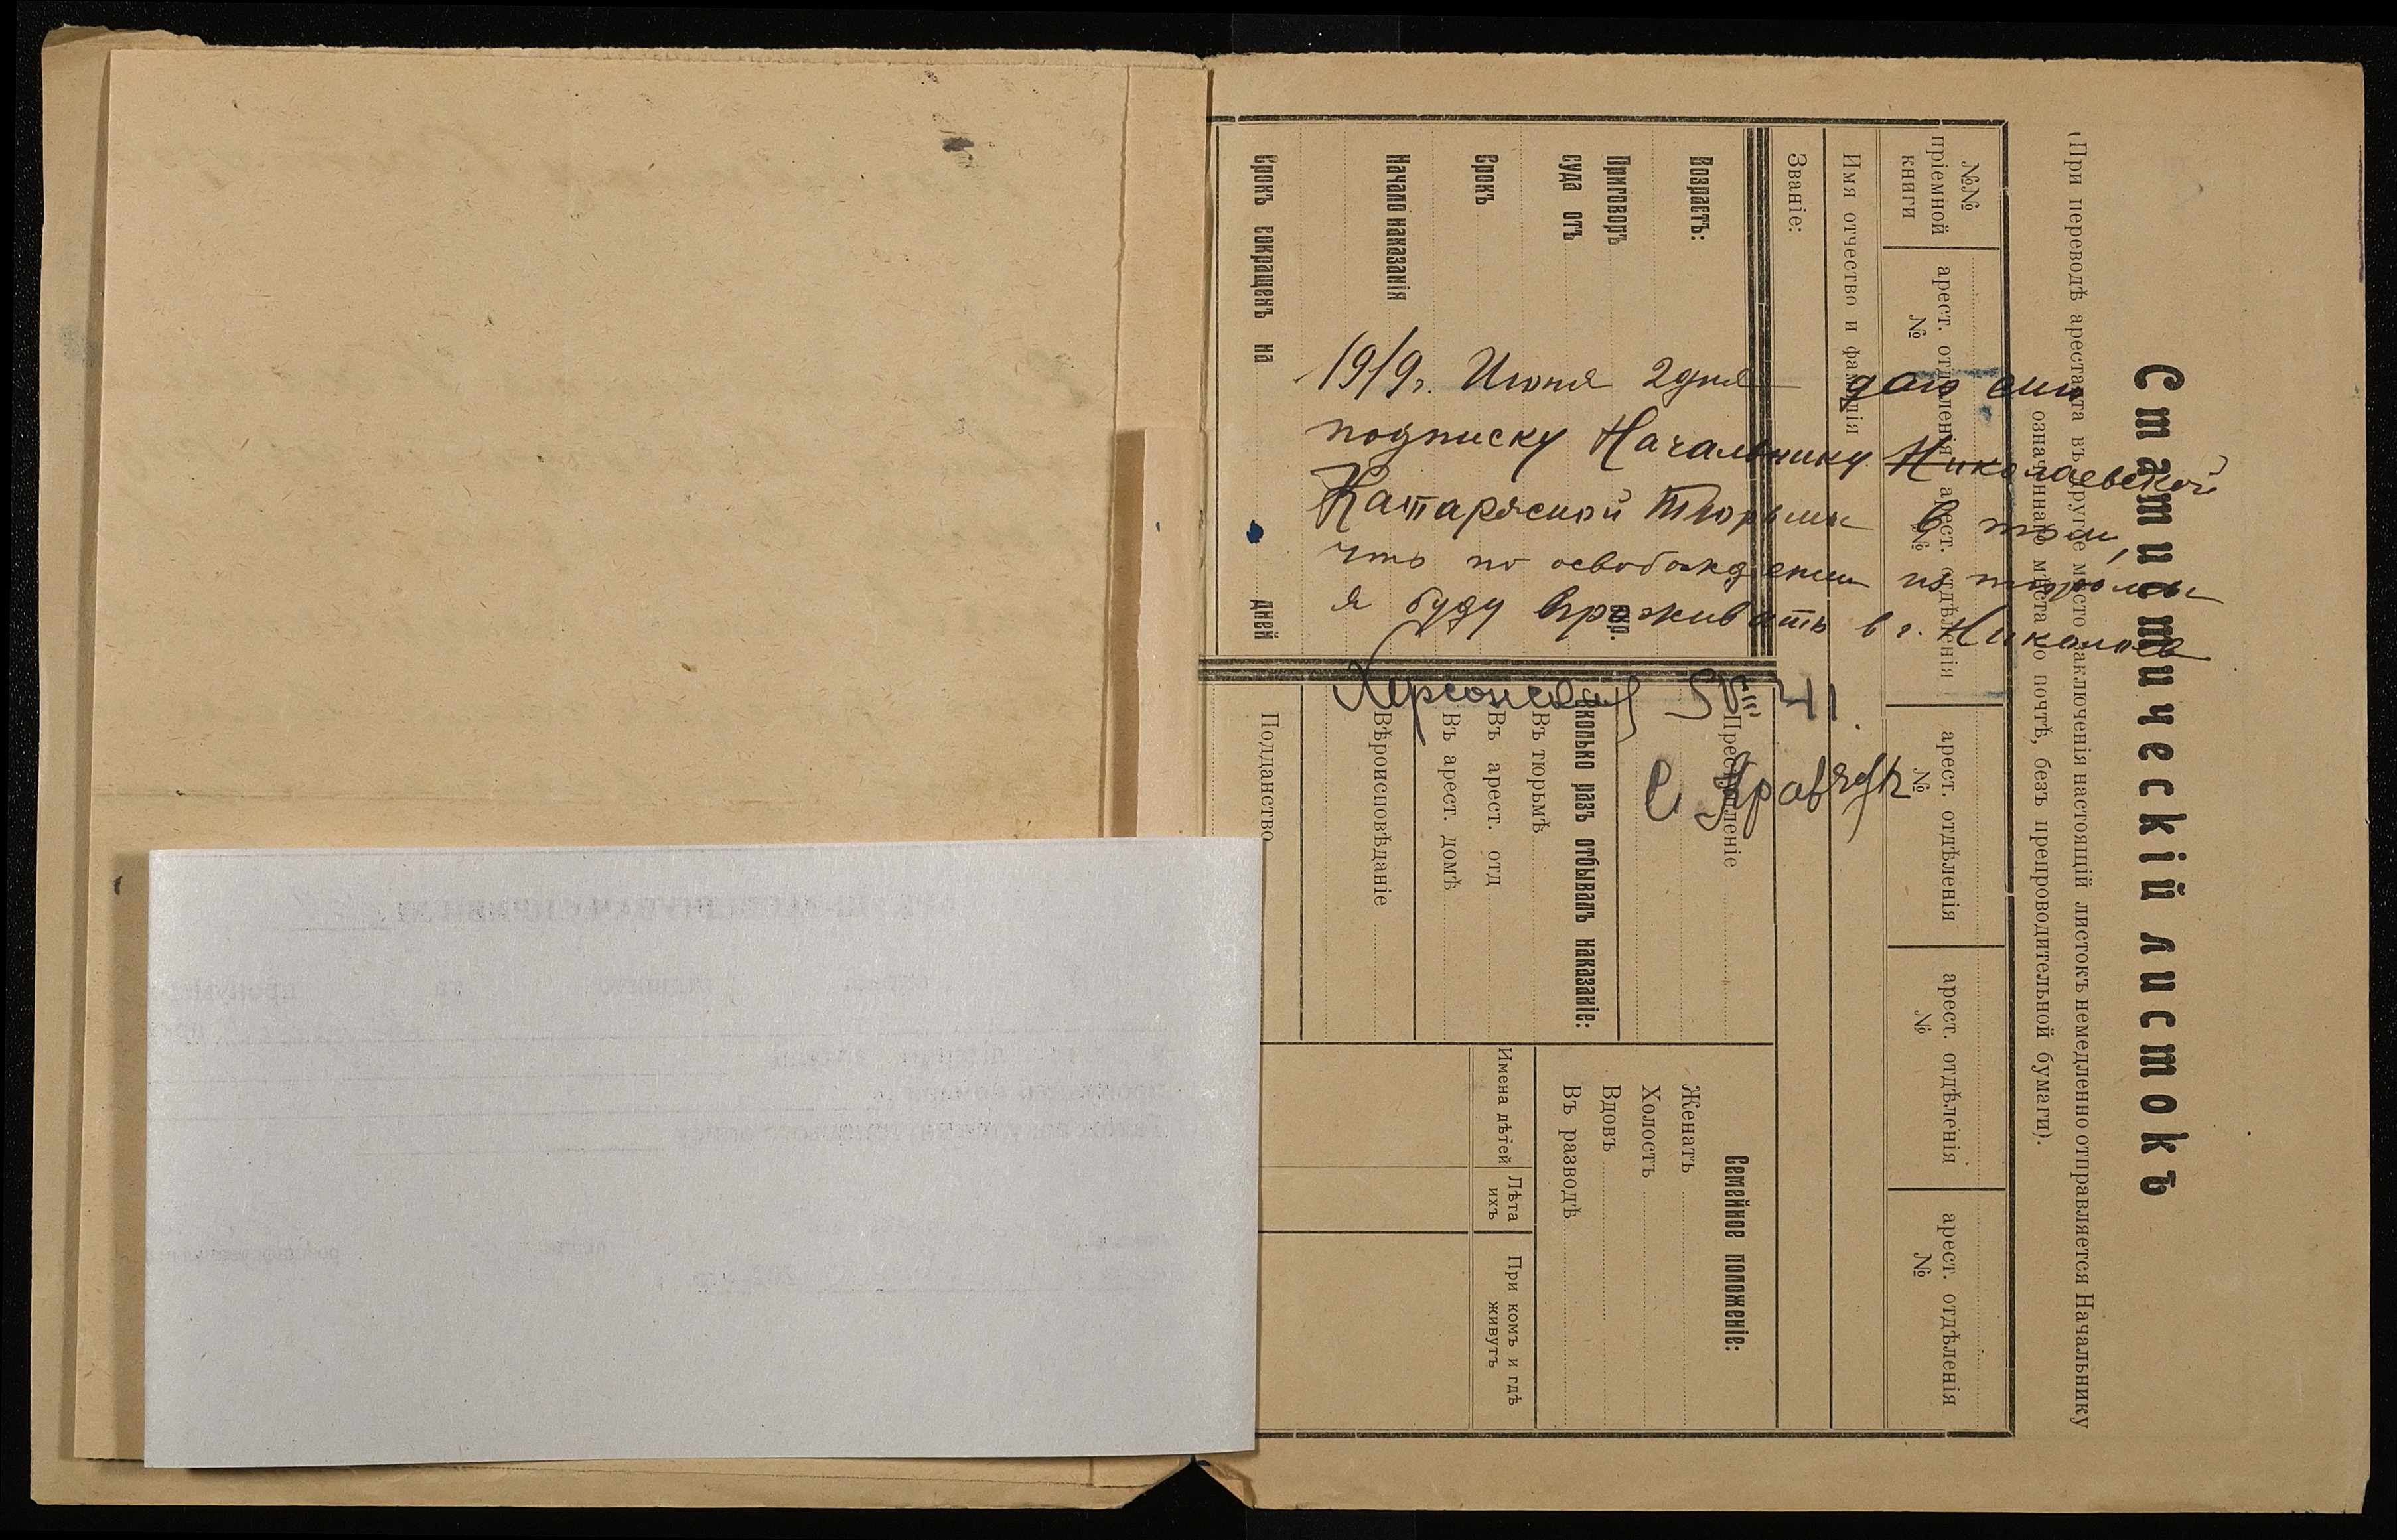 Статистическій листокъ
(При переводѣ арестанта въ другое мѣсто заключенія настоящій листокъ немедленно отправляется Начальнику
означеннаго мѣста по почтѣ, безъ препроводительной бумаги).
№№ пріемной книги
арест. отдѣленія №
арест. отдѣленія №
арест. отдѣленія №
арест. отдѣленія №
арест. отдѣленія №
Имя отчество и фамилія
Званіе:
Возрастъ:
Приговоръ
суда отъ
гр.
Срокъ
Начало наказанія
Срокъ сокращенъ на дней
Преступленіе
Сколько разъ отбывалъ наказаніе:
Въ тюрьмѣ
Въ арест. отд
Въ арест. домѣ
Вѣроисповѣданіе
Подданство
Семейное положеніе:
Женатъ
Холостъ
Вдовъ
Въ разводѣ
Имена дѣтей
Лѣта ихъ
При комъ и гдѣ живутъ
1919г. Июня 2 дня даю сию
подписку Начальнику Николаевской
Катаржной Тюрьмы в том,
что по освобождении из тюрьмы
я буду проживать в г. Николаев
Херсонская 41.
С Кравчук